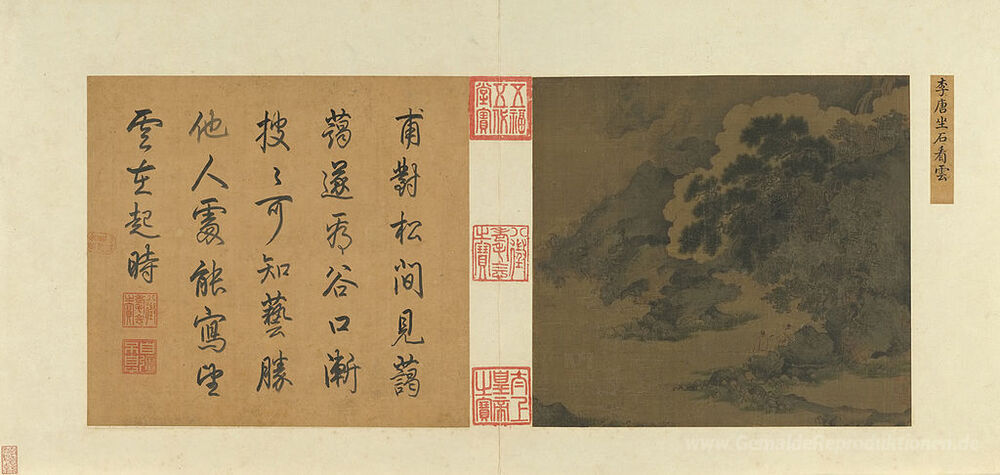 李唐坐石看雲
甫對松間見藹
藹遂谷口漸
〻可知藝勝
他人處能寫
雲在起時
五福五代堂寶
八徵耄念之寶
太上皇帝之寶
八徵耄念之寶
www.GemaldeReproduktionen.de